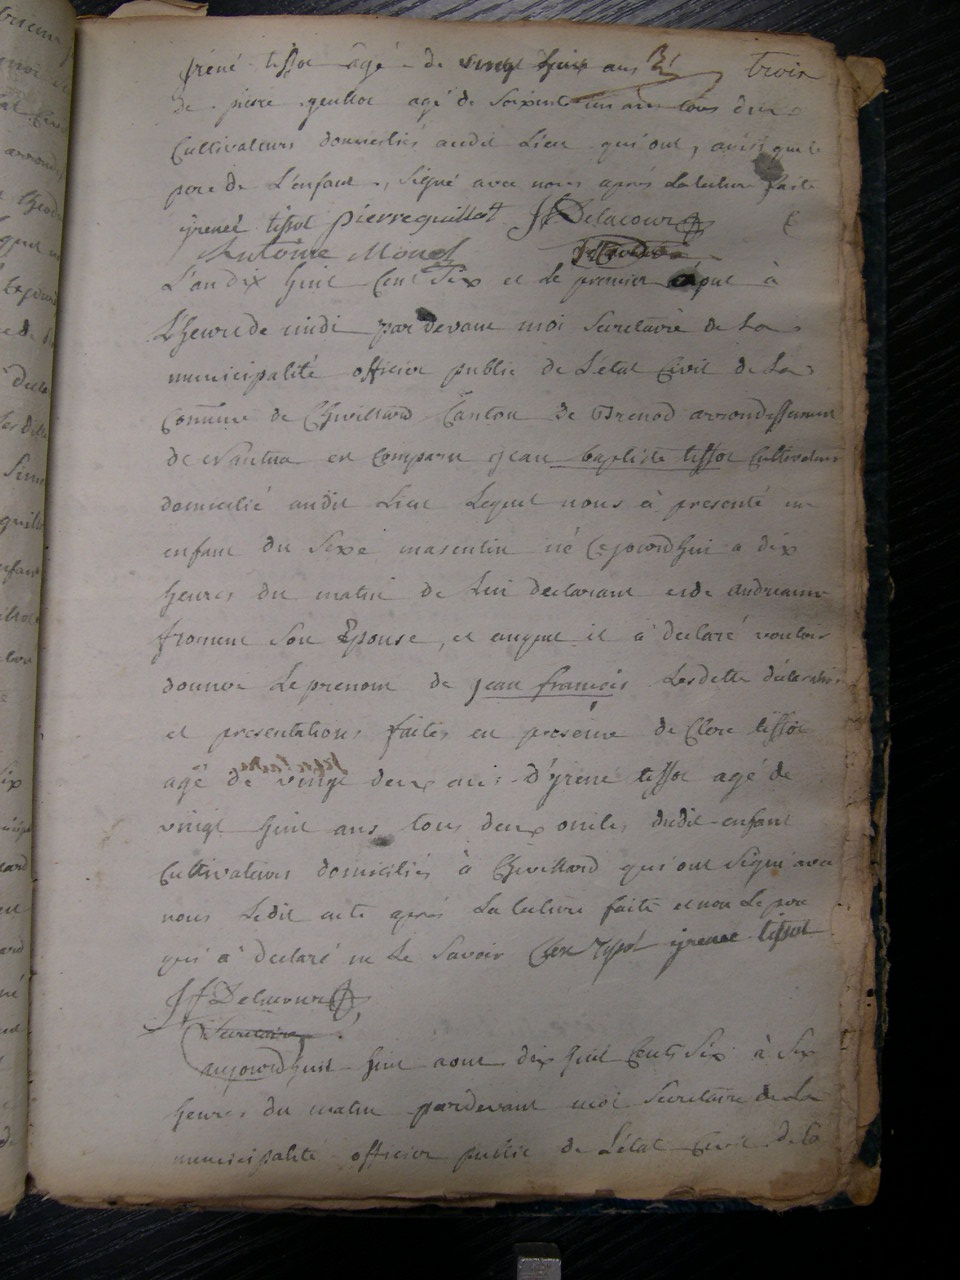 yrené tissot agé de vingt huit ans Et
trois
de pierre guillot agé de soixante un ans tous deux
Cultivateurs domiciliés audit Lieu qui ont, avec que le
pere de L'enfant, signé avec nous après La lecture faite
yreneé tissot pierre guillot Jf Delacour
Antoine Monet Secretaire
L'an dix huit Cent Six et le premier aout à
L'heure de midi par devant moi Secretaire de La
municipalité officier public de L'état Civil de La
Commune de Chevillard Canton de Brenod arrondissement
de Nantua est Comparu jean baptiste tissot Cultivateur
domicilié audit Lieu Lequel nous à presenté un
enfant du Sexe masculin né Cejourdhui a dix
heures du matin de Lui declarant et de andreanne
froment Son Epouse, et auquel il à declaré vouloir
donner Le prenom de jean francois Lesdette déclaration
et presentation faites en presence de Clere tissot
agé de vingt deux ans d'yrene tissot agé de
vingt huit ans tous deux oncles dudit enfant
Cultivateurs domiciliés à Chevillard qui ont Signé avec
nous Ledit acte après La lecture faite et non Le pere
qui à declaré ne Le Savoir Clere Tissot yrenee tissot
Jf Delacour
Secretaire
aujourdhuit huit aout dix huit Cents Six à Six
heures du matin pardevant moi Secretaire de La
municipalité officier public de L'état Civil de la